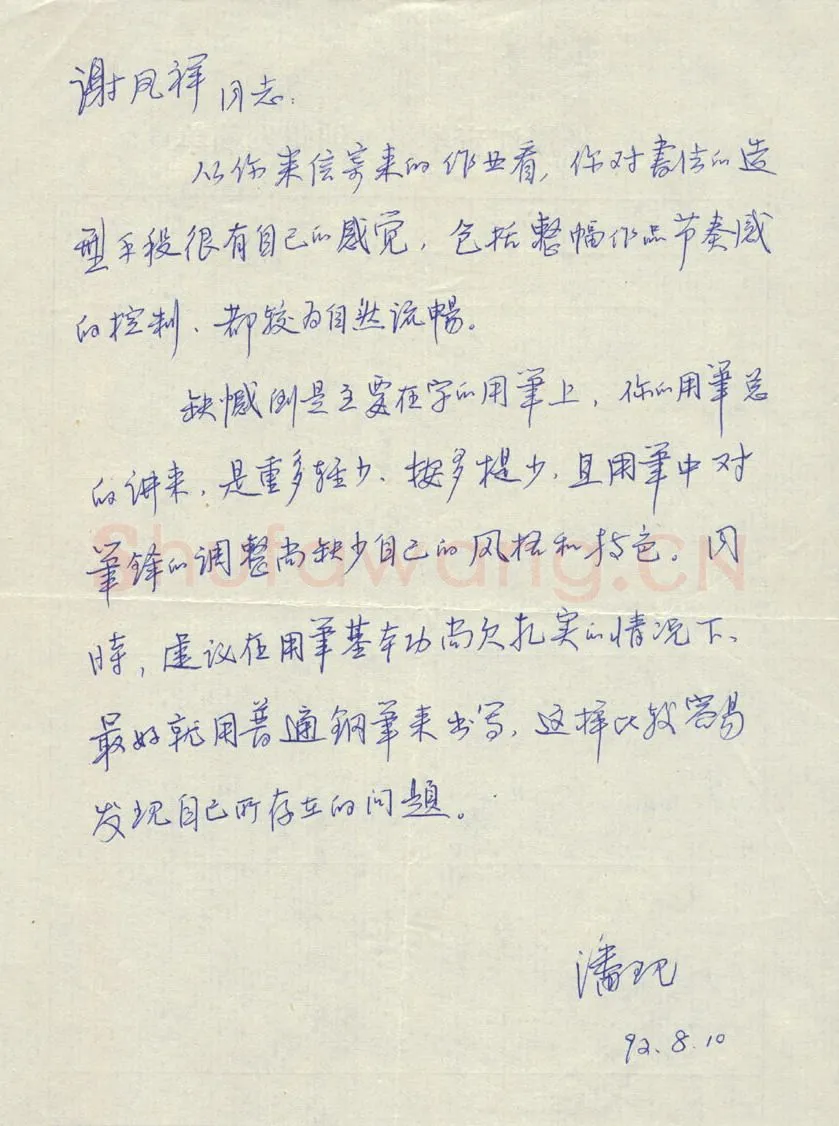 谢凤祥同志:
从你来信寄来的作业看,你对書法的造
型手段很有自己的感觉,包括整幅作品节奏感
的控制、都较为自然流畅。
缺憾倒是主要在字的用筆上,你的用筆总
的讲来,是重多轻少、按多提少,且用筆中对
筆鋒的调整尚缺少自己的风格和特色。同
時,建议在用筆基本功尚欠扎实的情况下、
最好就用普通鋼筆来书写,这样比较容易
发现自己所存在的问题。
潘
92.8.10
Shufawang.CN